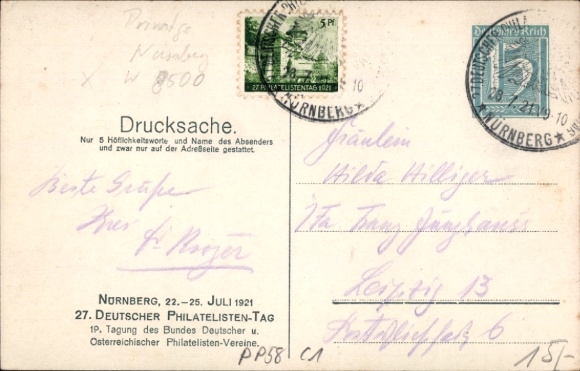 Privatga
Nürnberg
X W 8500
5 Pf
27. PHILATELISTENTAG 1921
NÜRNBERG
Deutsches Reich
15
NÜRNBERG
28.7.21. 9-10
Drucksache.
Nur 5 Höflichkeitsworte und Name des Absenders
und zwar nur auf der Adreßseite gestattet.
Beste Grüße
Ihres
Fräulein
Hilda Hilliger
Leipzig 13
6
NÜRNBERG, 22.–25. JULI 1921
27. DEUTSCHER PHILATELISTEN-TAG
19. Tagung des Bundes Deutscher u.
Österreichischer Philatelisten-Vereine.
PP58 C1
15/-